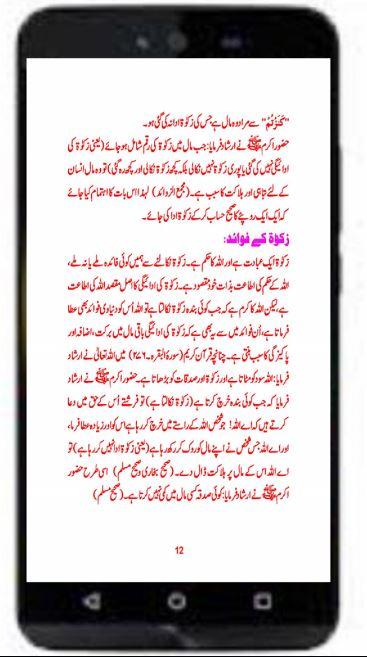 "کَنَزْتُمْ" سے مراد وہ مال ہے جس کی زکوٰۃ ادا نہ کی گئی ہو۔
حضور اکرم ﷺ نے ارشاد فرمایا: جب مال میں زکوٰۃ کی رقم شامل ہو جائے (یعنی زکوٰۃ کی
ادائیگی نہیں کی گئی یا پوری زکوٰۃ نہیں نکالی بلکہ کچھ زکوٰۃ نکالی اور کچھ رہ گئی) تو وہ مال انسان
کے لئے تباہی اور ہلاکت کا سبب ہے۔ (مجمع الزوائد) لہذا اس بات کا اہتمام کیا جائے
کہ ایک ایک روپئے کا صحیح حساب کرکے زکوٰۃ ادا کی جائے۔
زکوٰۃ کے فوائد:
زکوٰۃ ایک عبادت ہے اور اللہ کا حکم ہے۔ زکوٰۃ نکالنے سے ہمیں کوئی فائدہ ملے یا نہ ملے،
اللہ کے حکم کی اطاعت بذات خود مقصود ہے۔ زکوٰۃ کی ادائیگی کا اصل مقصد اللہ کی اطاعت
ہے، لیکن اللہ کا کرم ہے کہ جب کوئی بندہ زکوٰۃ نکالتا ہے تو اللہ اُس کو دنیاوی فوائد بھی عطا
فرماتا ہے، اُن فوائد میں سے یہ بھی ہے کہ زکوٰۃ کی ادائیگی باقی مال میں برکت، اضافہ اور
پاکیزگی کا سبب بنتی ہے۔ چنانچہ قرآن کریم (سورۃ البقرہ ۲۷۶) میں اللہ تعالیٰ نے ارشاد
فرمایا: اللہ سود کو مٹاتا ہے اور زکوٰۃ اور صدقات کو بڑھاتا ہے۔ حضور اکرم ﷺ نے ارشاد
فرمایا کہ جب کوئی بندہ خرچ کرتا ہے (زکوٰۃ نکالتا ہے) تو فرشتے اُس کے حق میں دعا
کرتے ہیں کہ اے اللہ! جو شخص اللہ کے راستے میں خرچ کررہا ہے اس کو اور زیادہ عطا فرما،
اور اے اللہ جس شخص نے اپنے مال کو روک کر رکھ رہا ہے (یعنی زکوٰۃ ادا نہیں کررہا ہے) تو
اے اللہ اس کے مال پر ہلاکت ڈال دے۔ (صحیح بخاری و صحیح مسلم) اسی طرح حضور
اکرم ﷺ نے ارشاد فرمایا: کوئی صدقہ کسی مال میں کمی نہیں کرتا ہے۔ (صحیح مسلم)
12